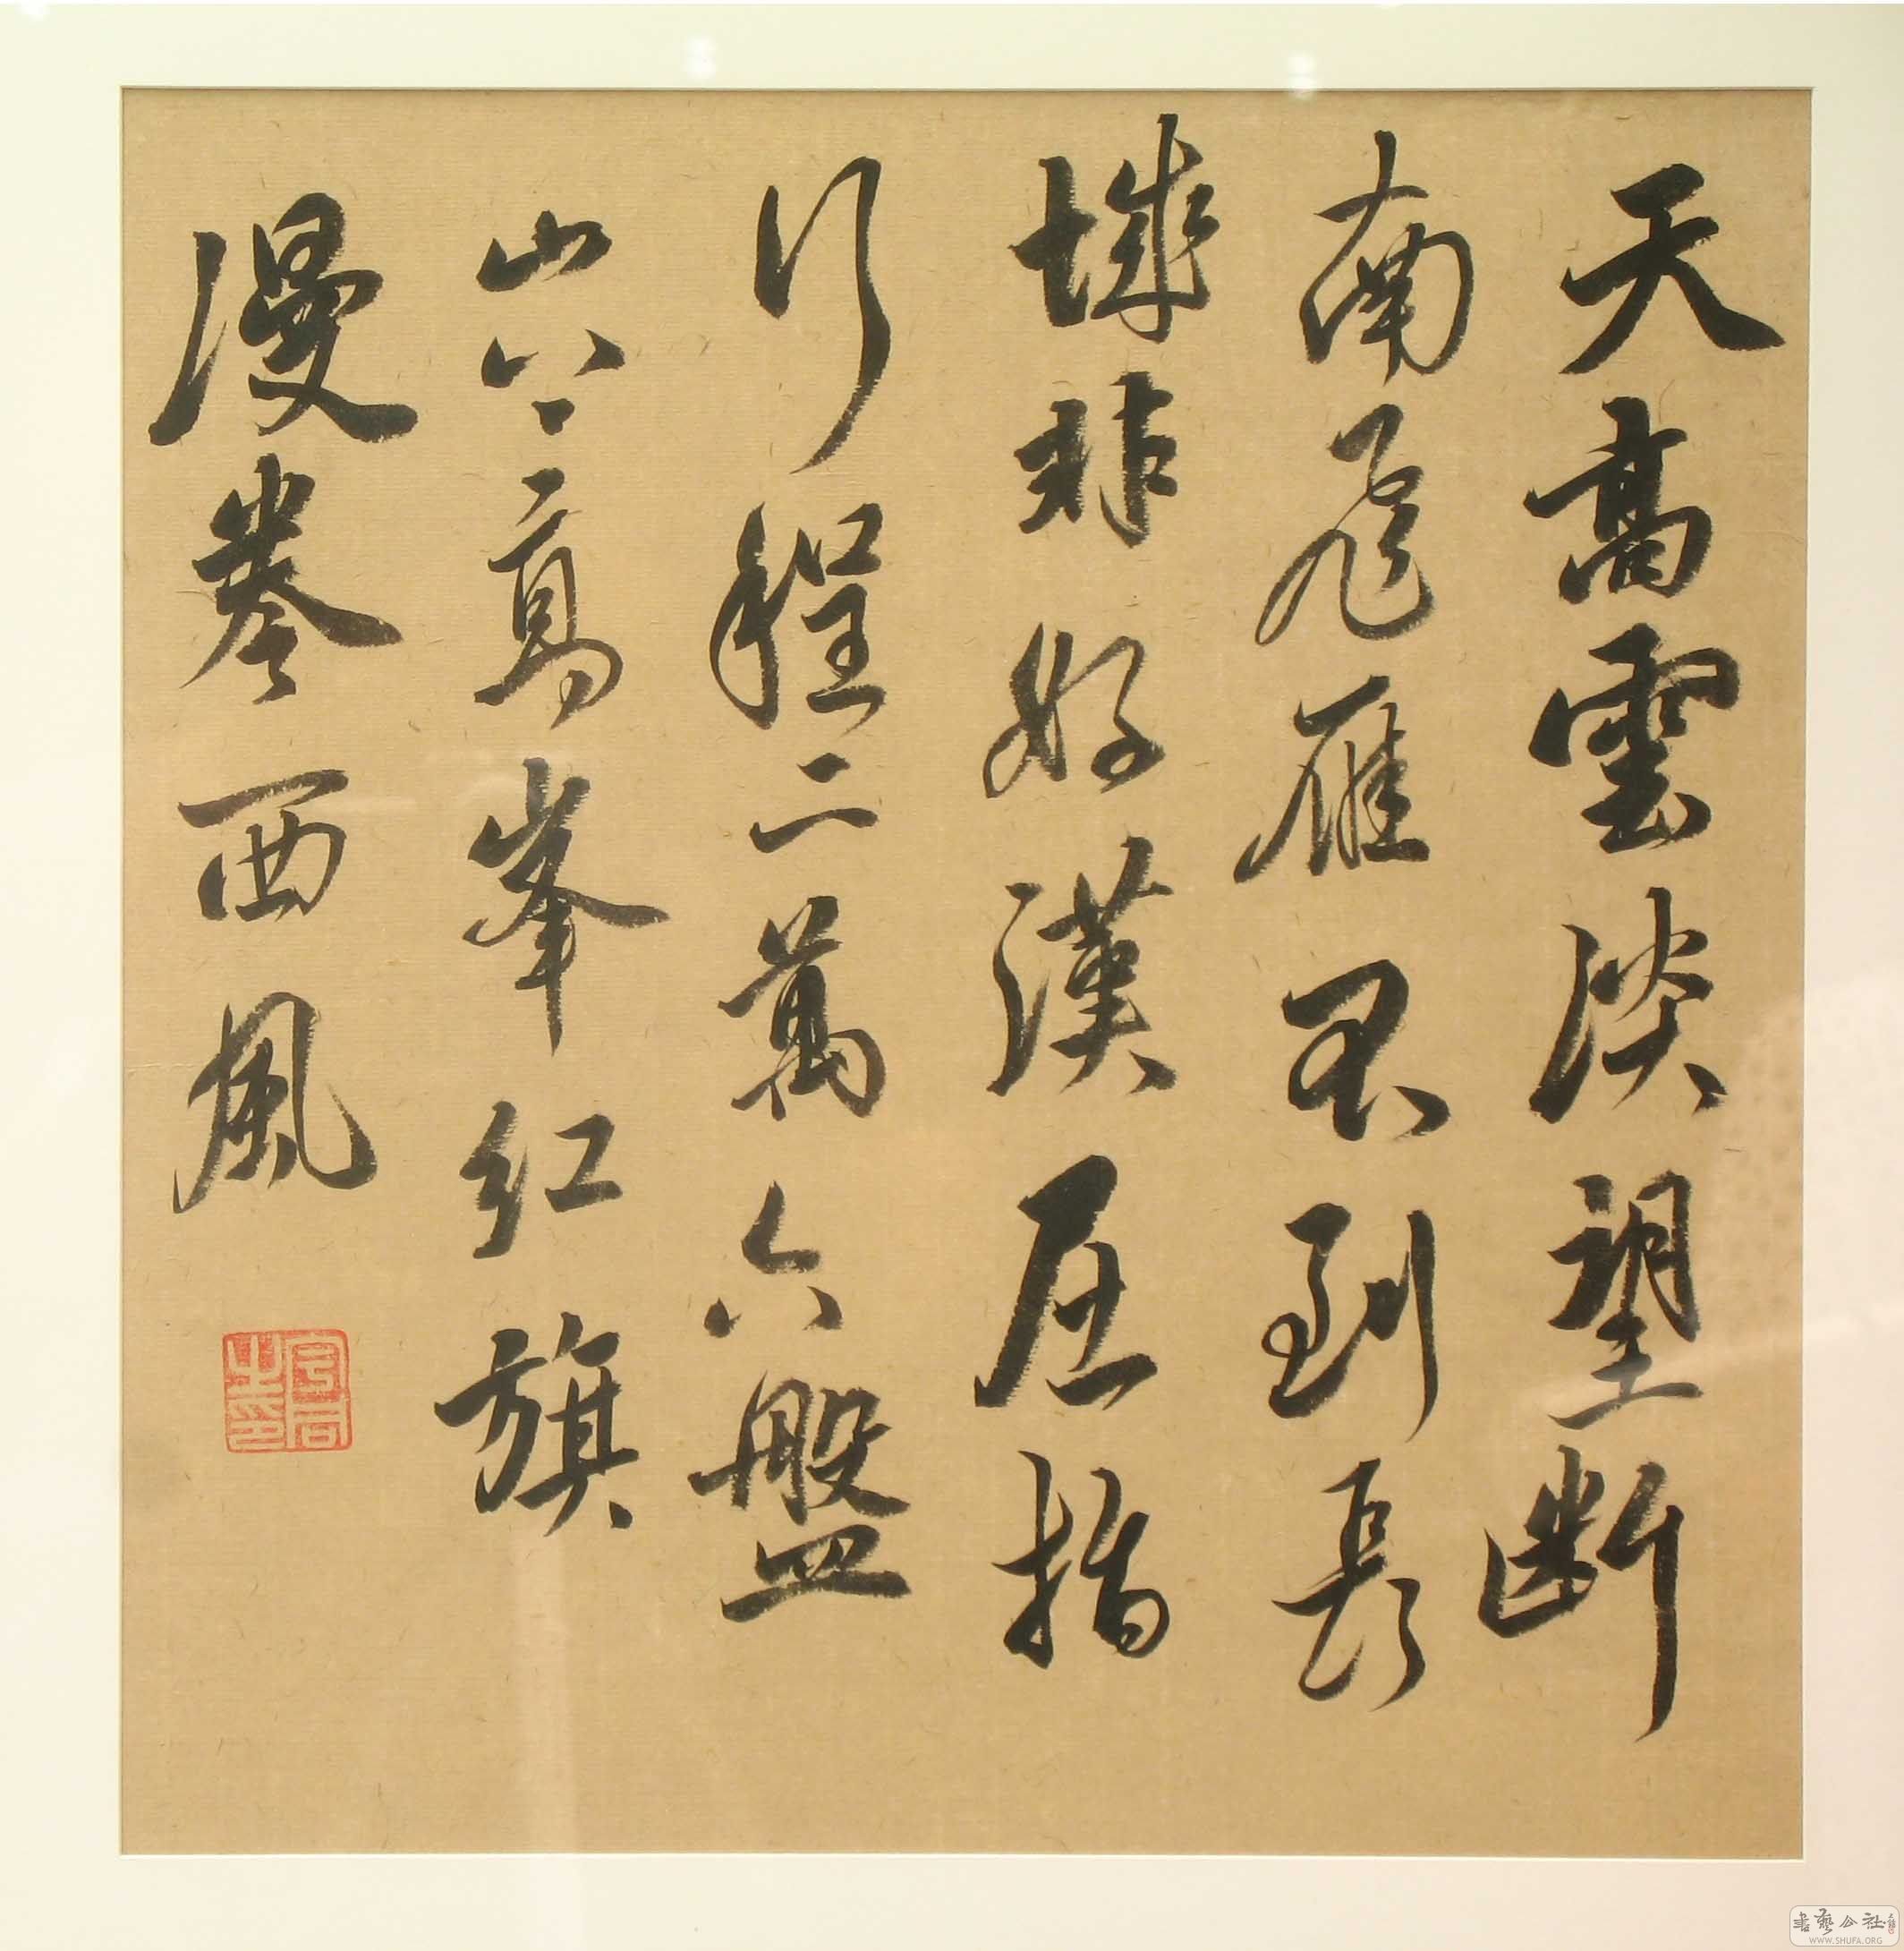 天高雲淡望斷
南飛雁不到長
城非好漢屈指
行程二萬六盤
山上高峯紅旗
漫卷西風
書藝公社
WWW.SHUFA.ORG